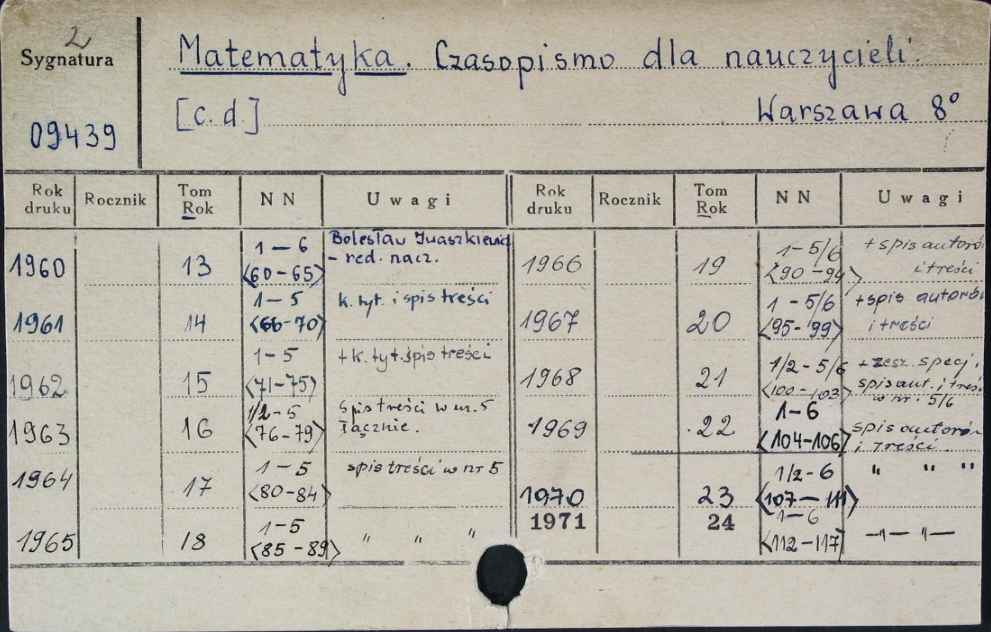 2
Sygnatura
Matematyka. Czasopismo dla nauczycieli.
[c. d.] Warszawa 8°
09439
Rok druku Rocznik Tom Rok NN Uwagi Rok druku Rocznik Tom Rok NN Uwagi
1960 13 1-6 <60-65> Bolesław Iwaszkiewicz - red. nacz.
1961 14 1-5 <66-70> k. tyt. i spis treści
1962 15 1-5 <71-75> + k. tyt. spis treści
1963 16 1/2-5 <76-79> spis treści w nr. 5 łącznie.
1964 17 1-5 <80-84> spis treści w nr 5
1965 18 1-5 <85-89> " " "
1966 19 1-5/6 <90-94> + spis autorów i treści
1967 20 1-5/6 <95-99> + spis autorów i treści
1968 21 1/2-5/6 <100-103> + zesz. specj. spis aut. i treści w nr. 5/6
1969 22 1-6 <104-106> spis autorów i treści.
1970 23 1/2-6 <107-111> " " "
1971 24 1-6 <112-117> -"- "-